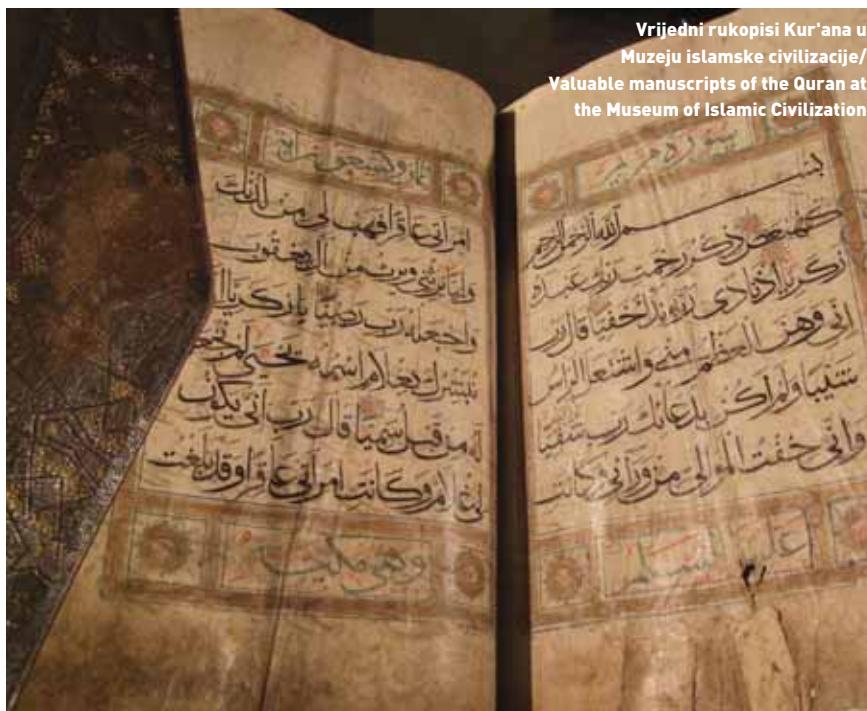 Vrijedni rukopisi Kur'ana u
Muzeju islamske civilizacije/
Valuable manuscripts of the Quran at
the Museum of Islamic Civilization
سورة مريم
بسم الله الرحمن الرحيم
كهيعص ذكر رحمت ربك عبده
زكريا اذ نادى ربه نداء خفيا قال رب
اني وهن العظم مني واشتعل الراس
شيبا ولم اكن بدعائك رب شقيا
واني خفت الموالي من ورائي وكانت
السلم
وتسعون
امراتي عاقرا فهب لي من لدنك
وليا يرثني ويرث من ال يعقوب
واجعله رب رضيا يا زكريا
نبشرك بغلام اسمه يحيى لم نجعل
له من قبل سميا قال رب انى يكون
لي غلام وكانت امراتي عاقرا وقد بلغت
وهي مكية